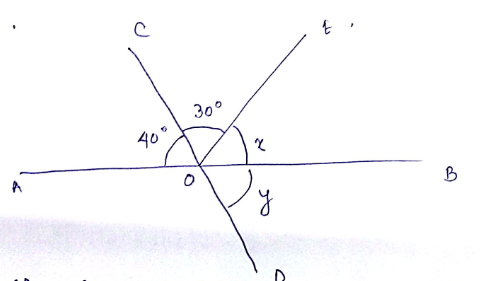 C
E
30°
40°
x
A
O
B
y
D